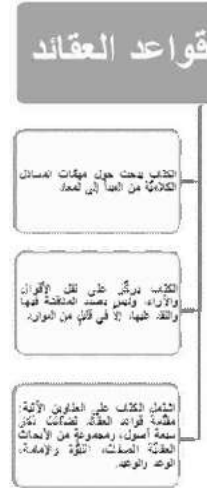 قواعد العقائد
الكتاب يبحث حول مهمّات المسائل
الكلاميّة من المبدأ إلى المعاد
الكتاب يركّز على نقل الأقوال
والآراء، وليس بصدد المناقشة فيها
والنقد عليها، إلا في قليل من الموارد
اشتمل الكتاب على العناوين الآتية:
مقدّمة قواعد العقائد تضمّنت ذكر
سبعة أصول، ومجموعة من الأبحاث
العقديّة الصفات، النبوّة والإمامة،
الوعد والوعيد